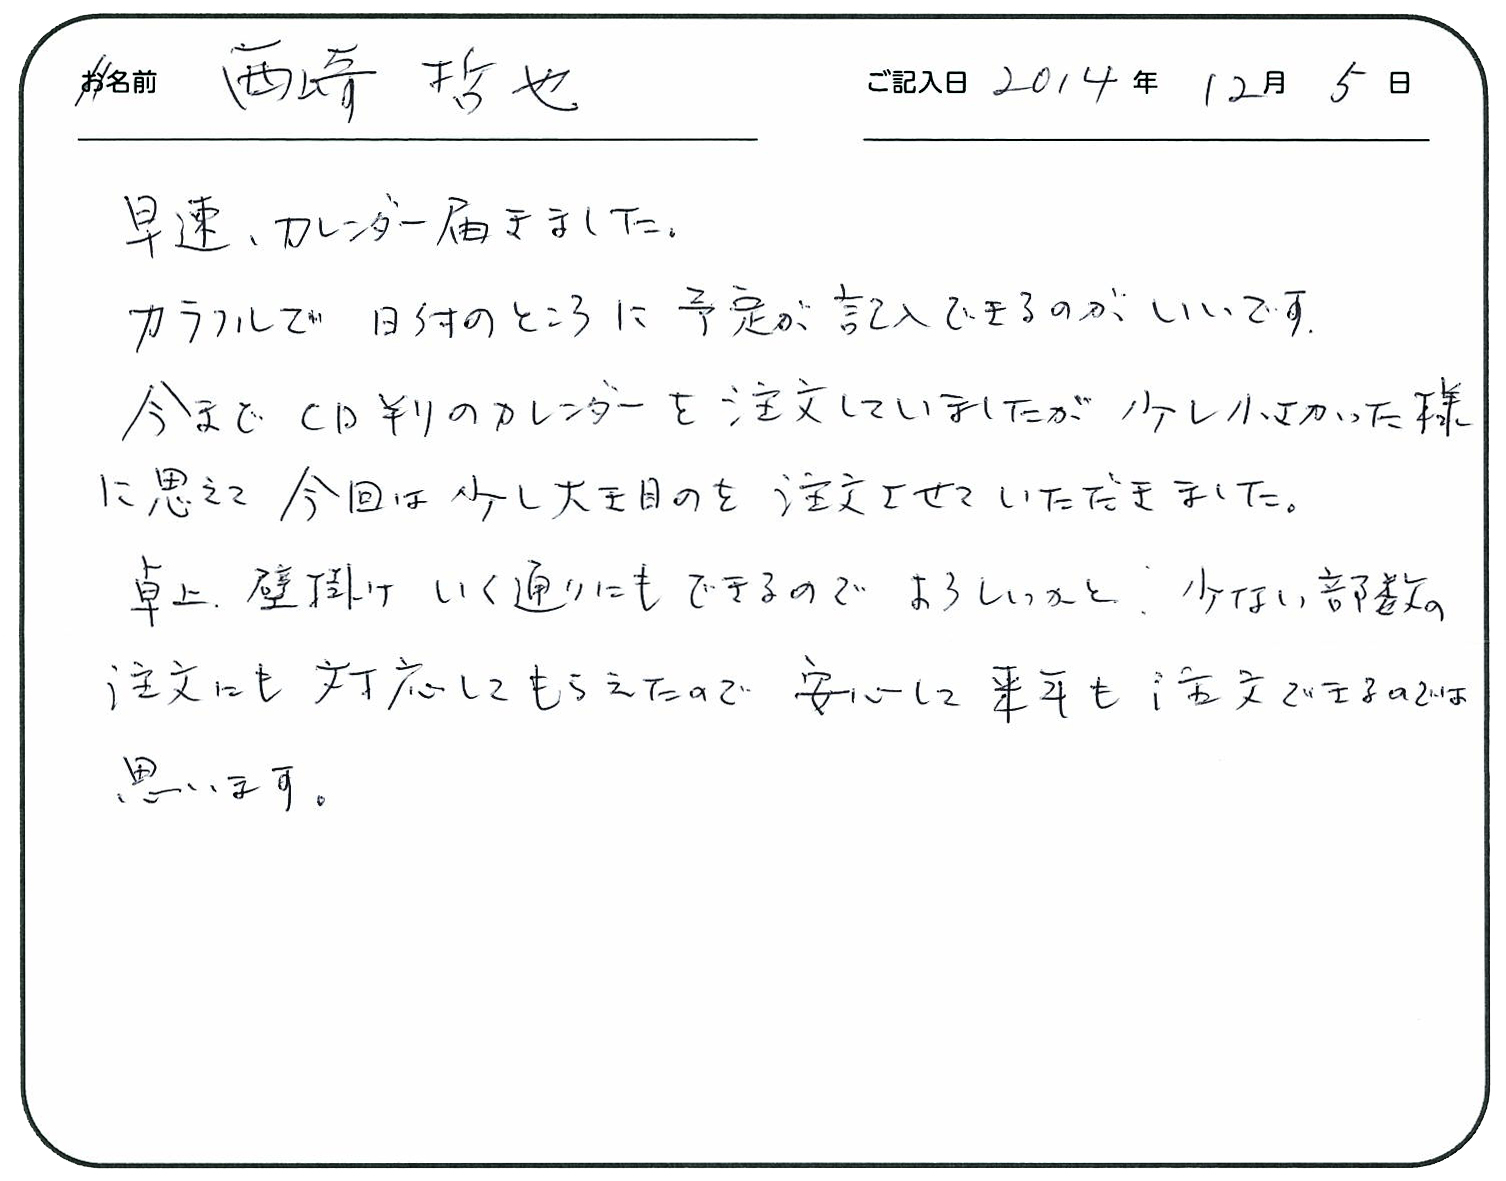 お名前 西崎 哲也 ご記入日 2014年 12月 5日
早速、カレンダー届きました。
カラフルで 日付のところに 予定が 記入できるのが いいです.
今まで CD判のカレンダーを 注文していましたが 少し小さかった様
に思えて 今回は 少し大き目のを 注文させていただきました。
卓上. 壁掛け いく通りにもできるので よろしいかと. 少ない部数の
注文にも 対応してもらえたので 安心して 来年も 注文できるのでは
思います。